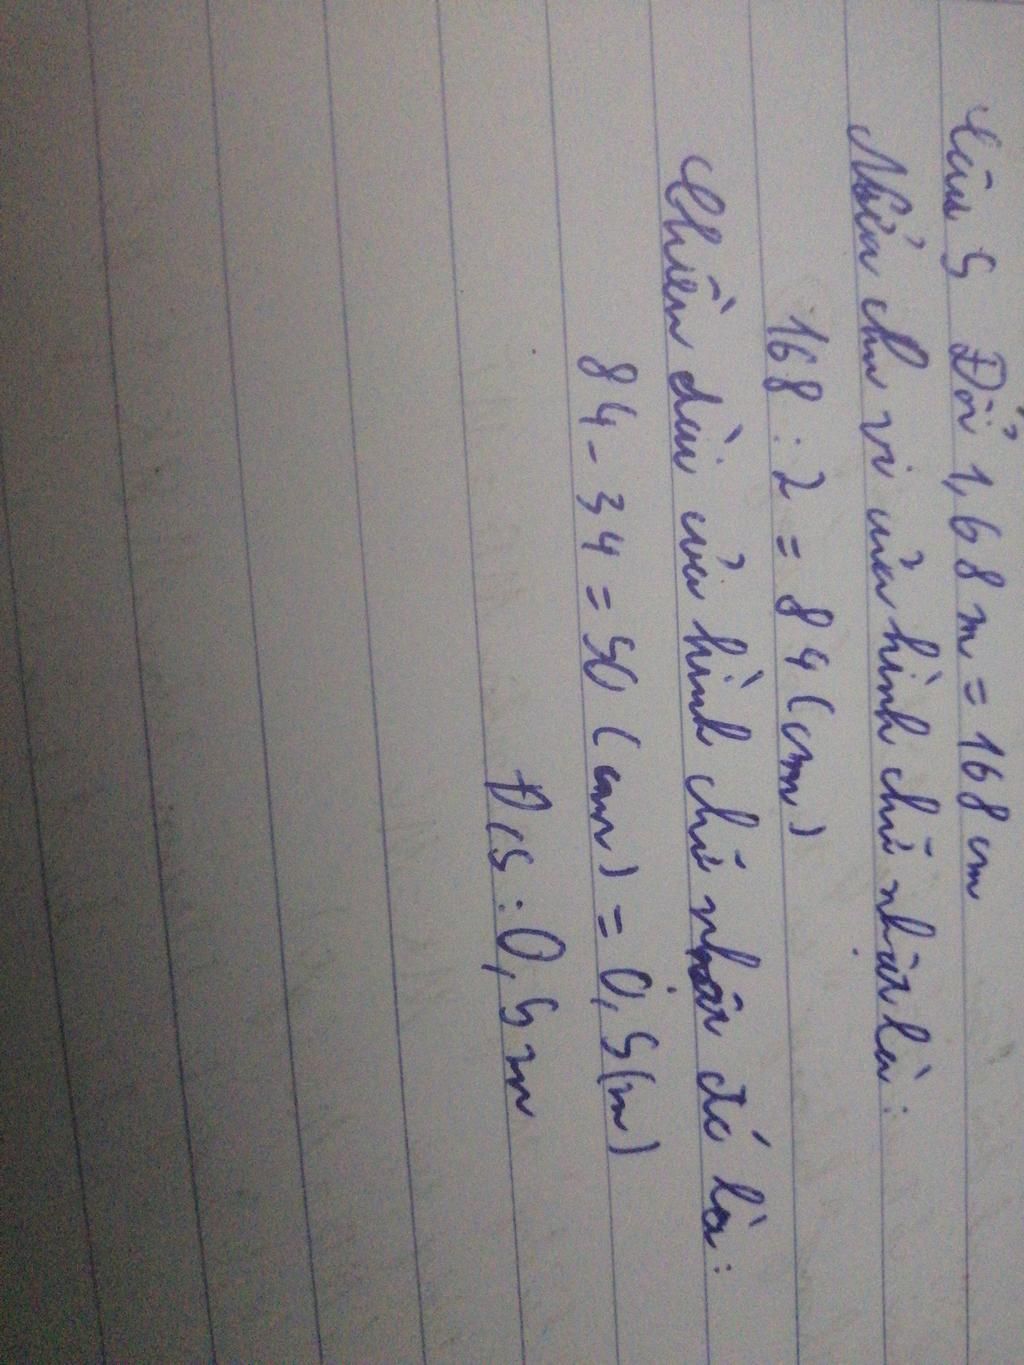 Câu 5 Đổi 1,68 m = 168 cm
Nửa chu vi của hình chữ nhật là:
168 : 2 = 84 (cm)
Chiều dài của hình chữ nhật đó là:
84 - 34 = 50 (cm) = 0,5 (m)
Đ/S : 0,5 m